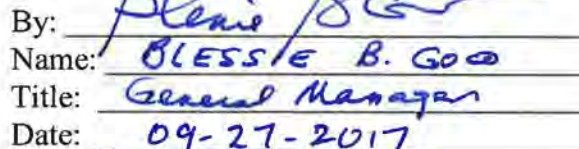 By:
Name: BLESSIE B. GOCO
Title: General Manager
Date: 09-27-2017